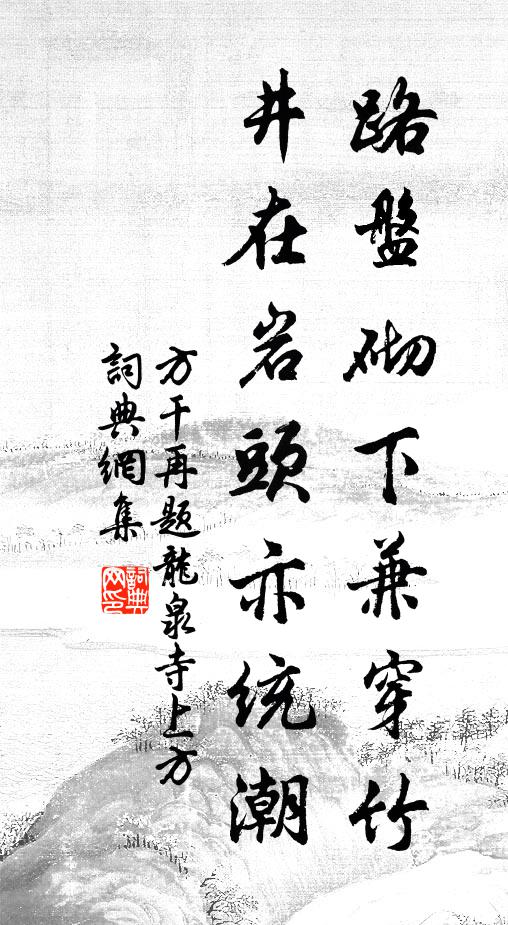 路盤砌下兼穿竹
井在岩頭亦统潮
方干再题龍泉寺上方
詞典網集
詞典网印